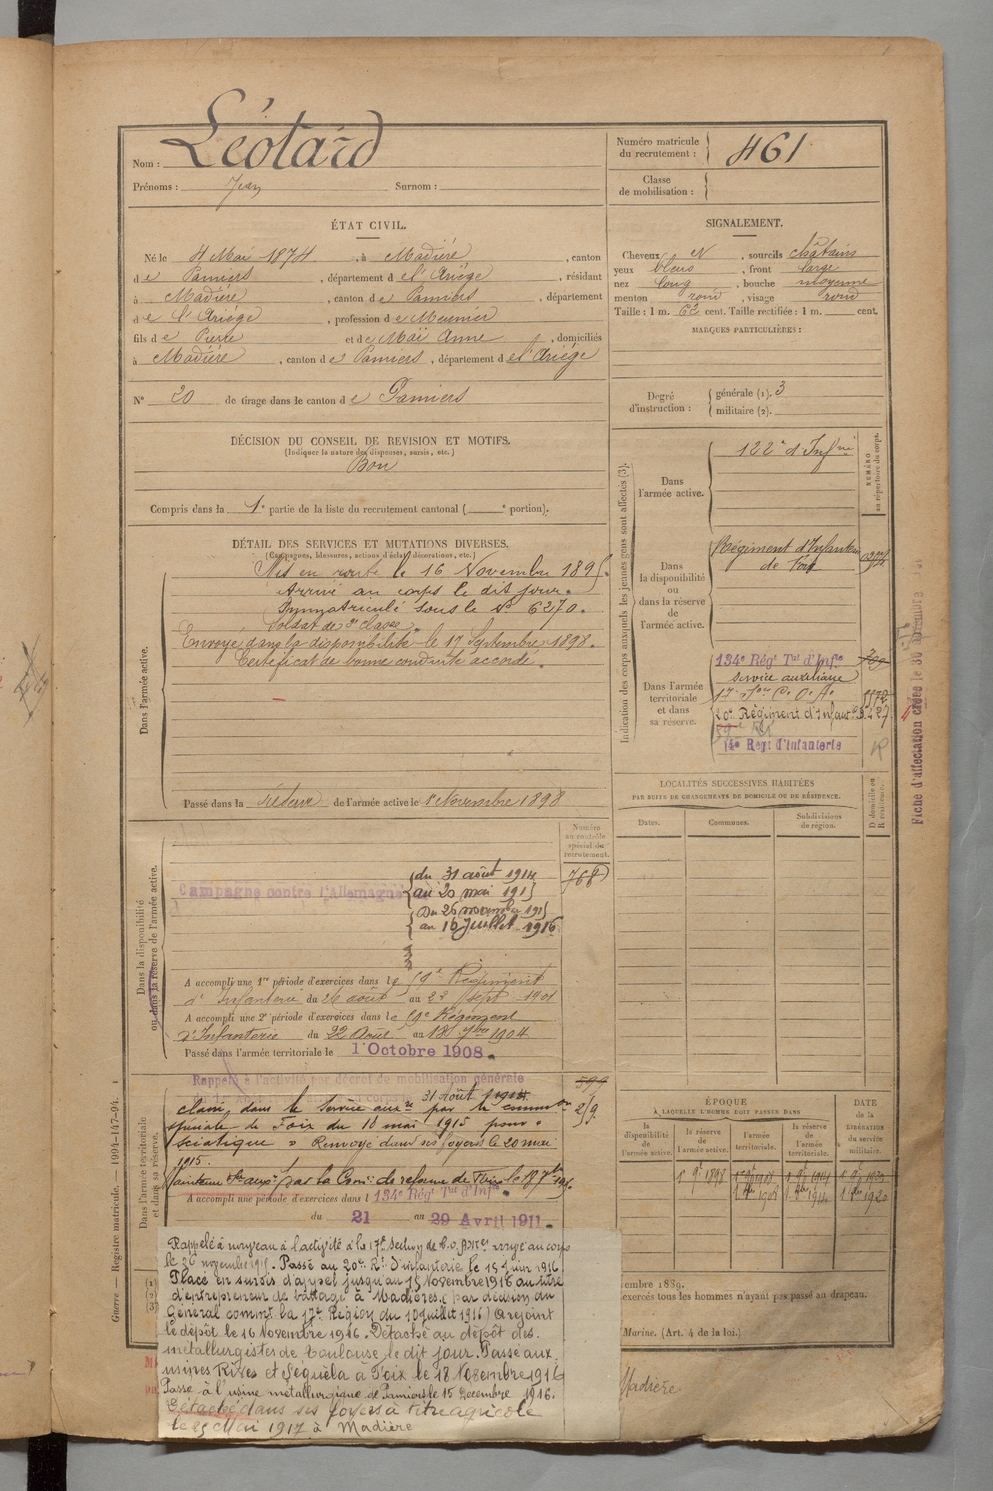 Nom : Léotard
Prénoms : Jean Surnom :
Numéro matricule du recrutement : 461
Classe de mobilisation :
ÉTAT CIVIL.
Né le 4 Mai 1874, à Madière, canton
de Pamiers, département de l'Ariège, résidant
à Madière, canton de Pamiers, département
de l'Ariège, profession de Meunier
fils de Pierre et de Maï Anne, domiciliés
à Madière, canton de Pamiers, département de l'Ariège
N° 20 de tirage dans le canton de Pamiers
DÉCISION DU CONSEIL DE REVISION ET MOTIFS.
(Indiquer la nature des dispenses, sursis, etc.)
Bon
Compris dans la 1e partie de la liste du recrutement cantonal ( e portion).
SIGNALEMENT.
Cheveux N, sourcils châtains
yeux bleus, front large
nez long, bouche moyenne
menton rond, visage rond
Taille : 1 m. 62 cent. Taille rectifiée : 1 m. cent.
MARQUES PARTICULIÈRES :
Degré d'instruction : générale (1). 3
militaire (2).
DÉTAIL DES SERVICES ET MUTATIONS DIVERSES.
(Campagnes, blessures, actions d'éclat, décorations, etc.)
Dans l'armée active.
Mis en route le 16 Novembre 1895.
Arrivé au corps le dit jour.
Immatriculé sous le N° 6270.
Soldat de 2e classe.
Envoyé dans la disponibilité le 17 Septembre 1898.
Certificat de bonne conduite accordé.
Passé dans la réserve de l'armée active le 1 Novembre 1898
Indication des corps auxquels les jeunes gens sont affectés (3).
NUMÉRO au répertoire du corps.
Dans l'armée active.
122e d'Infrie
Dans la disponibilité ou dans la réserve de l'armée active.
Régiment d'Infanterie
de Foix
Dans l'armée territoriale et dans sa réserve.
134e Régt Tal d'Infie
Service auxiliaire
20e Régiment d'Infanterie
14e Regt d'Infanterie
Fiche d'affectation créée le 30
LOCALITÉS SUCCESSIVES HABITÉES
PAR SUITE DE CHANGEMENTS DE DOMICILE OU DE RÉSIDENCE.
Dates. Communes. Subdivisions de région. D domicile ou R résidence.
Dans la disponibilité ou dans la réserve de l'armée active.
Numéro au contrôle spécial du recrutement.
768
Campagne contre l'Allemagne
du 31 août 1914
au 20 mai 1915
Du 26 novembre 1915
au 16 Juillet 1916
A accompli une 1re période d'exercices dans le 59e Régiment
d'Infanterie du 26 août au 22 sept 1901
A accompli une 2e période d'exercices dans le 59e Régiment
d'Infanterie du 22 Août au 18 7bre 1904
Passé dans l'armée territoriale le 1 Octobre 1908.
Rappelé à l'activité par décret de mobilisation générale
31 Août 1914
Dans l'armée territoriale et dans sa réserve.
599
classé dans le Service auxre par la commion
spéciale de Foix du 10 mai 1915 pour
"sciatique" Renvoyé dans ses foyers le 20 mai
1915.
Maintenu Sce auxre par la Comon de réforme de Foix le
A accompli une période d'exercices dans l 134e Régt Tal d'Infie
du 21 au 29 Avril 1911.
Rappelé à nouveau à l'activité à la 17e Section de C.O.A. arrivé au corps
le 26 novembre 1915. Passé au 20e Rt d'infanterie le 15 juin 1916
Placé en sursis d'appel jusqu'au 15 Novembre 1916 au titre
d'entrepreneur de battage à Madières (par décision du
Général commt la 17e Région du 10 juillet 1916) A rejoint
le dépôt le 16 Novembre 1916. Détaché au dépôt des
métallurgistes de Toulouse le dit jour. Passé aux
usines Rives et Séguéla à Foix le 18 Novembre 1916
Passé à l'usine métallurgique de Pamiers le 15 Decembre 1916.
Détaché dans ses foyers à titre agricole
le 25 Mai 1917 à Madière
ÉPOQUE
À LAQUELLE L'HOMME DOIT PASSER DANS
la disponibilité de l'armée active. la réserve de l'armée active. l'armée territoriale. la réserve de l'armée territoriale.
DATE de la LIBÉRATION du service militaire.
1 9bre 1898
1 8bre 1908 1 8bre 1914 1 8bre 1920
embre 1889.
exercés tous les hommes n'ayant pas passé au drapeau.
Marine. (Art. 4 de la loi.)
Madière
Guerre — Registre matricule. — 1994-147-94.